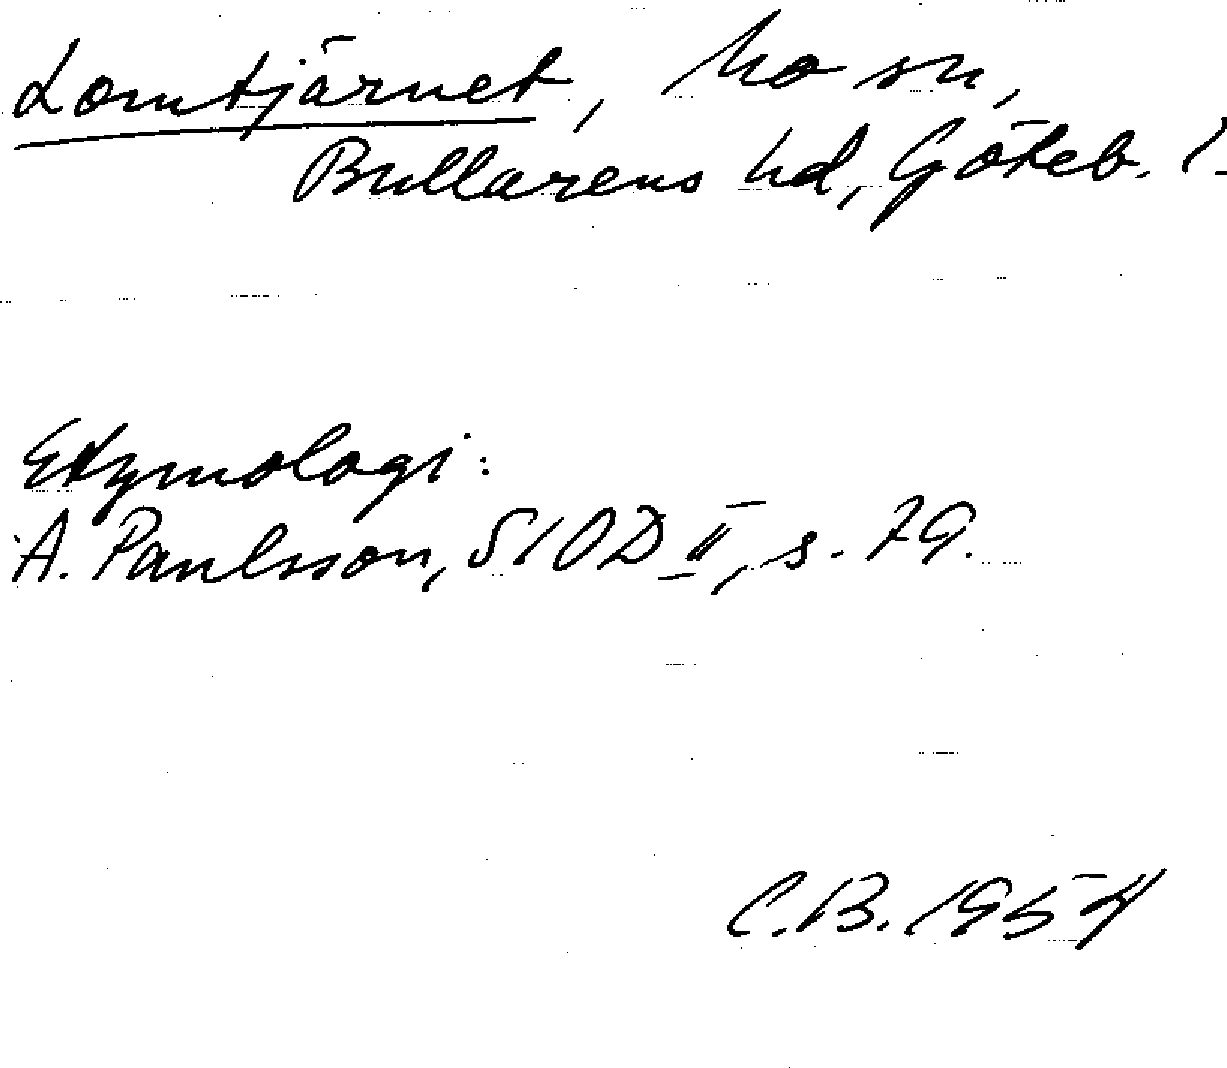 Lomtjärnet, Mo sn,
Bullarens hd, Göteb. l.
Etymologi:
A. Paulsson, SIOD II, s. 79.
C.B. 1954